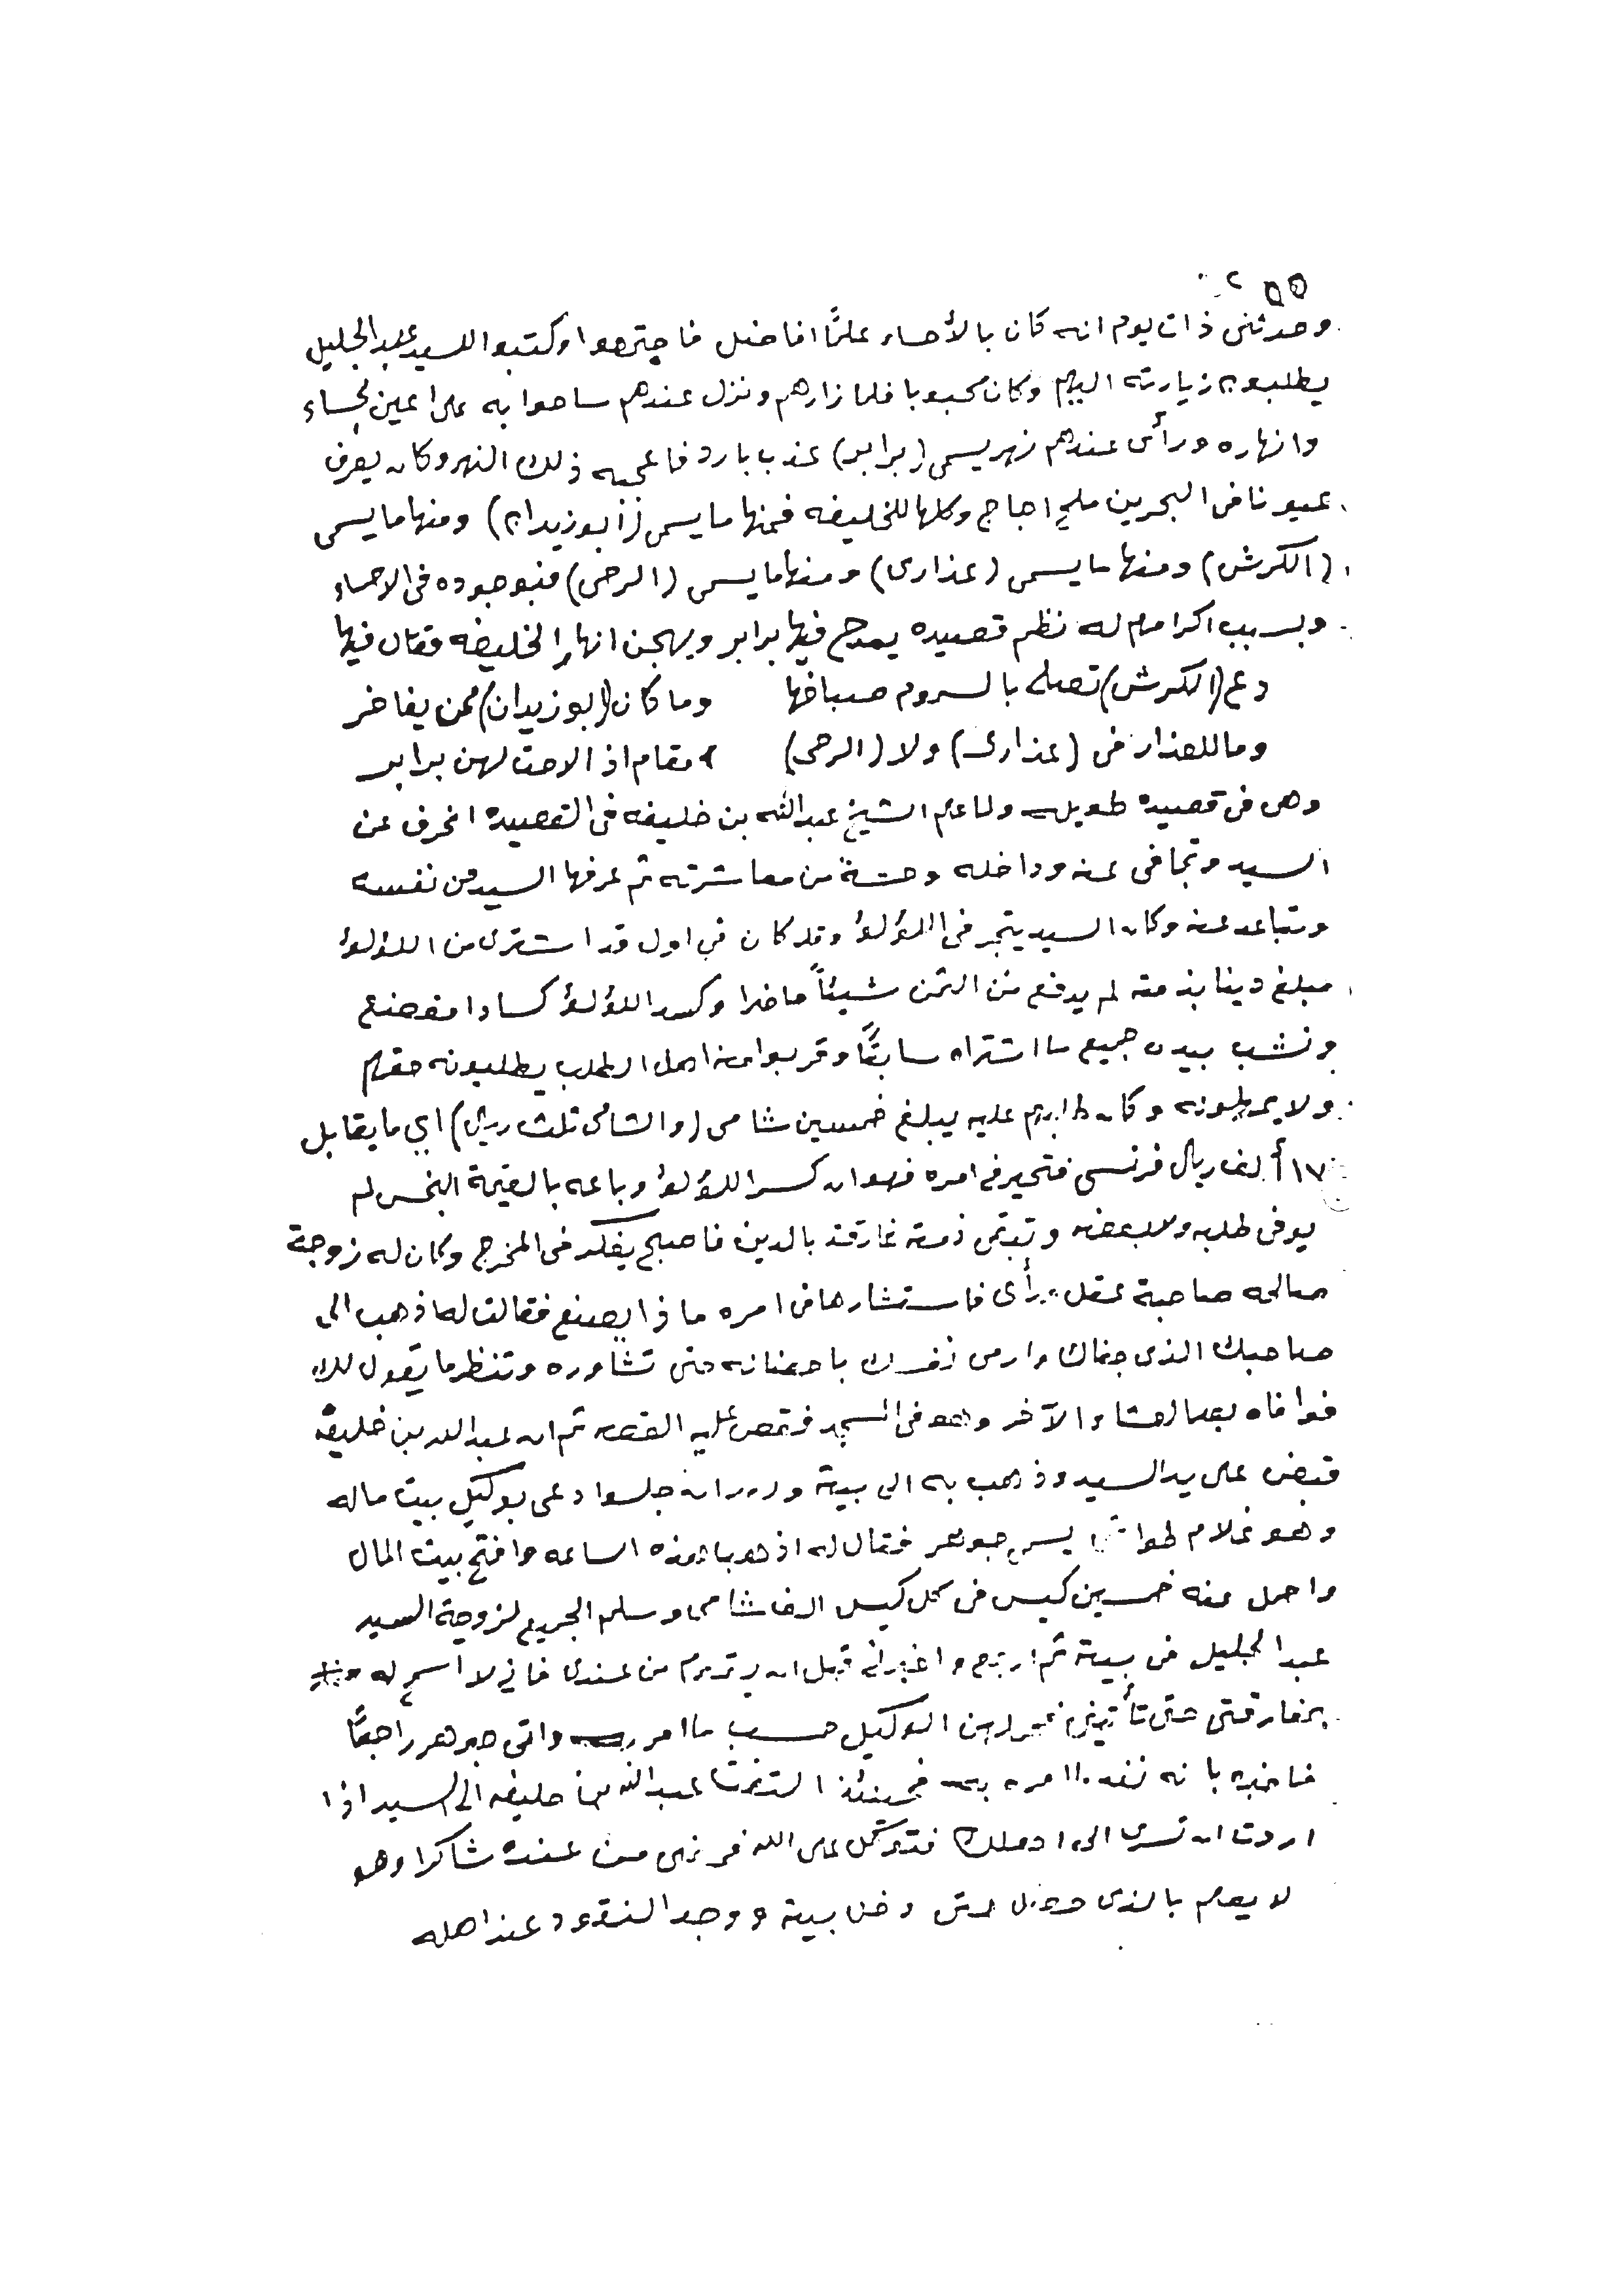 ٢٥٥
وحدثنى ذات يوم انه كان بالأحساء علمًا افاضل فاجتمعوا وكتبوا للسيد عبد الجليل
يطلبون زيارته اليهم وكان محبوبا فلما زارهم ونزل عندهم ساحوا به على اعين لحساء
وانهاره ورأى عندهم نهر يسمى (برابر) عذب بارد فاعجبه ذلك النهر وكان يعرف
عيونا فى البحرين ملح اجاج وكلها للخليفه فمنها ما يسمى (أبوزيدان) ومنها ما يسمى
(الكرش) ومنها ما يسمى (عذارى) ومنها ما يسمى (الرحى) فبوجوده فى الاحساء
وبسبب اكرامهم له نظم قصيده يمدح فيها برابر ويهجن انهار الخليفه فقال فيها
دع (الكرش) تصلى بالسموم صباخها وما كان (ابوزيدان) ممن يفاخر
وما للعذار فى (عذارى) ولا (الرحى) مقام اذ الاحت لهن برابر
وهى فى قصيده طويلة ولما علم الشيخ عبدالله بن خليفه فى القصيده انحرف عن
السيد وتجافى عنه وداخله وحشة من معاشرته ثم عرفها السيد من نفسه
وتباعد عنه وكان السيد يتجر فى اللؤلؤ وقد كان فى اول قد اشترى من اللؤلؤ
مبلغ دينا بذمته لم يدفع من الثمن شيئاً حاضرا وكسد اللؤلؤ كسادا
ونشب بيده جميع ما اشتراه سابقًا وقربوا منه اهل الطلب يطلبونه حقهم
ولا يمهلونه وكان طلبهم عليه يبلغ خمسين شامى (والشامى ثلث ريال) اي ما يقابل
١٧ ألف ريال فرنسى فتحير فى امره فهو ان كسر اللؤلؤ وباعه بالقيمة البخس لم
يوفى طلبه ولا بعضه وتبقى ذمته غارقة بالدين فاصبح يفكر فى المخرج وكان له زوجة
صالحه صاحبة عقل ورأى فاستشارها فى امره ماذا يصنع فقالت له اذهب الى
صاحبك الذى جفاك وارمى نفسك باحضانه حتى تشاوره وتنظر ما يقول لك
فوافاه بعد العشاء الآخر وهو فى المسجد فقص عليه القصه ثم ان عبد الله بن خليفة
قبض على يد السيد وذهب به الى بيته وبعد ان جلسوا دعى بوكيل بيت ماله
وهو غلام طواشى يسمى جوهر فقال له اذهب بهذه الساعه وافتح بيت المال
واحمل منه خمسين كيس فى كل كيس الف شامى وسلم الجميع لزوجة السيد
عبد الجليل فى بيته ثم ارجع واخبرنى قبل ان يقوم من عندى فاني لا اسمح له
بمفارقتى حتى تأتينى الوكيل حسب ما امر به واتى جوهر راجعًا
فاخبره بانه نفذ ما امره به فحينئذ التفت عبدالله بن خليفه الى السيد اذا
اردت ان تسرى الى اهلك فتوكل على الله من عنده شاكرا وهو
لا يعلم بالذى حصل حتى دخل بيته ووجد النقود عند اهله